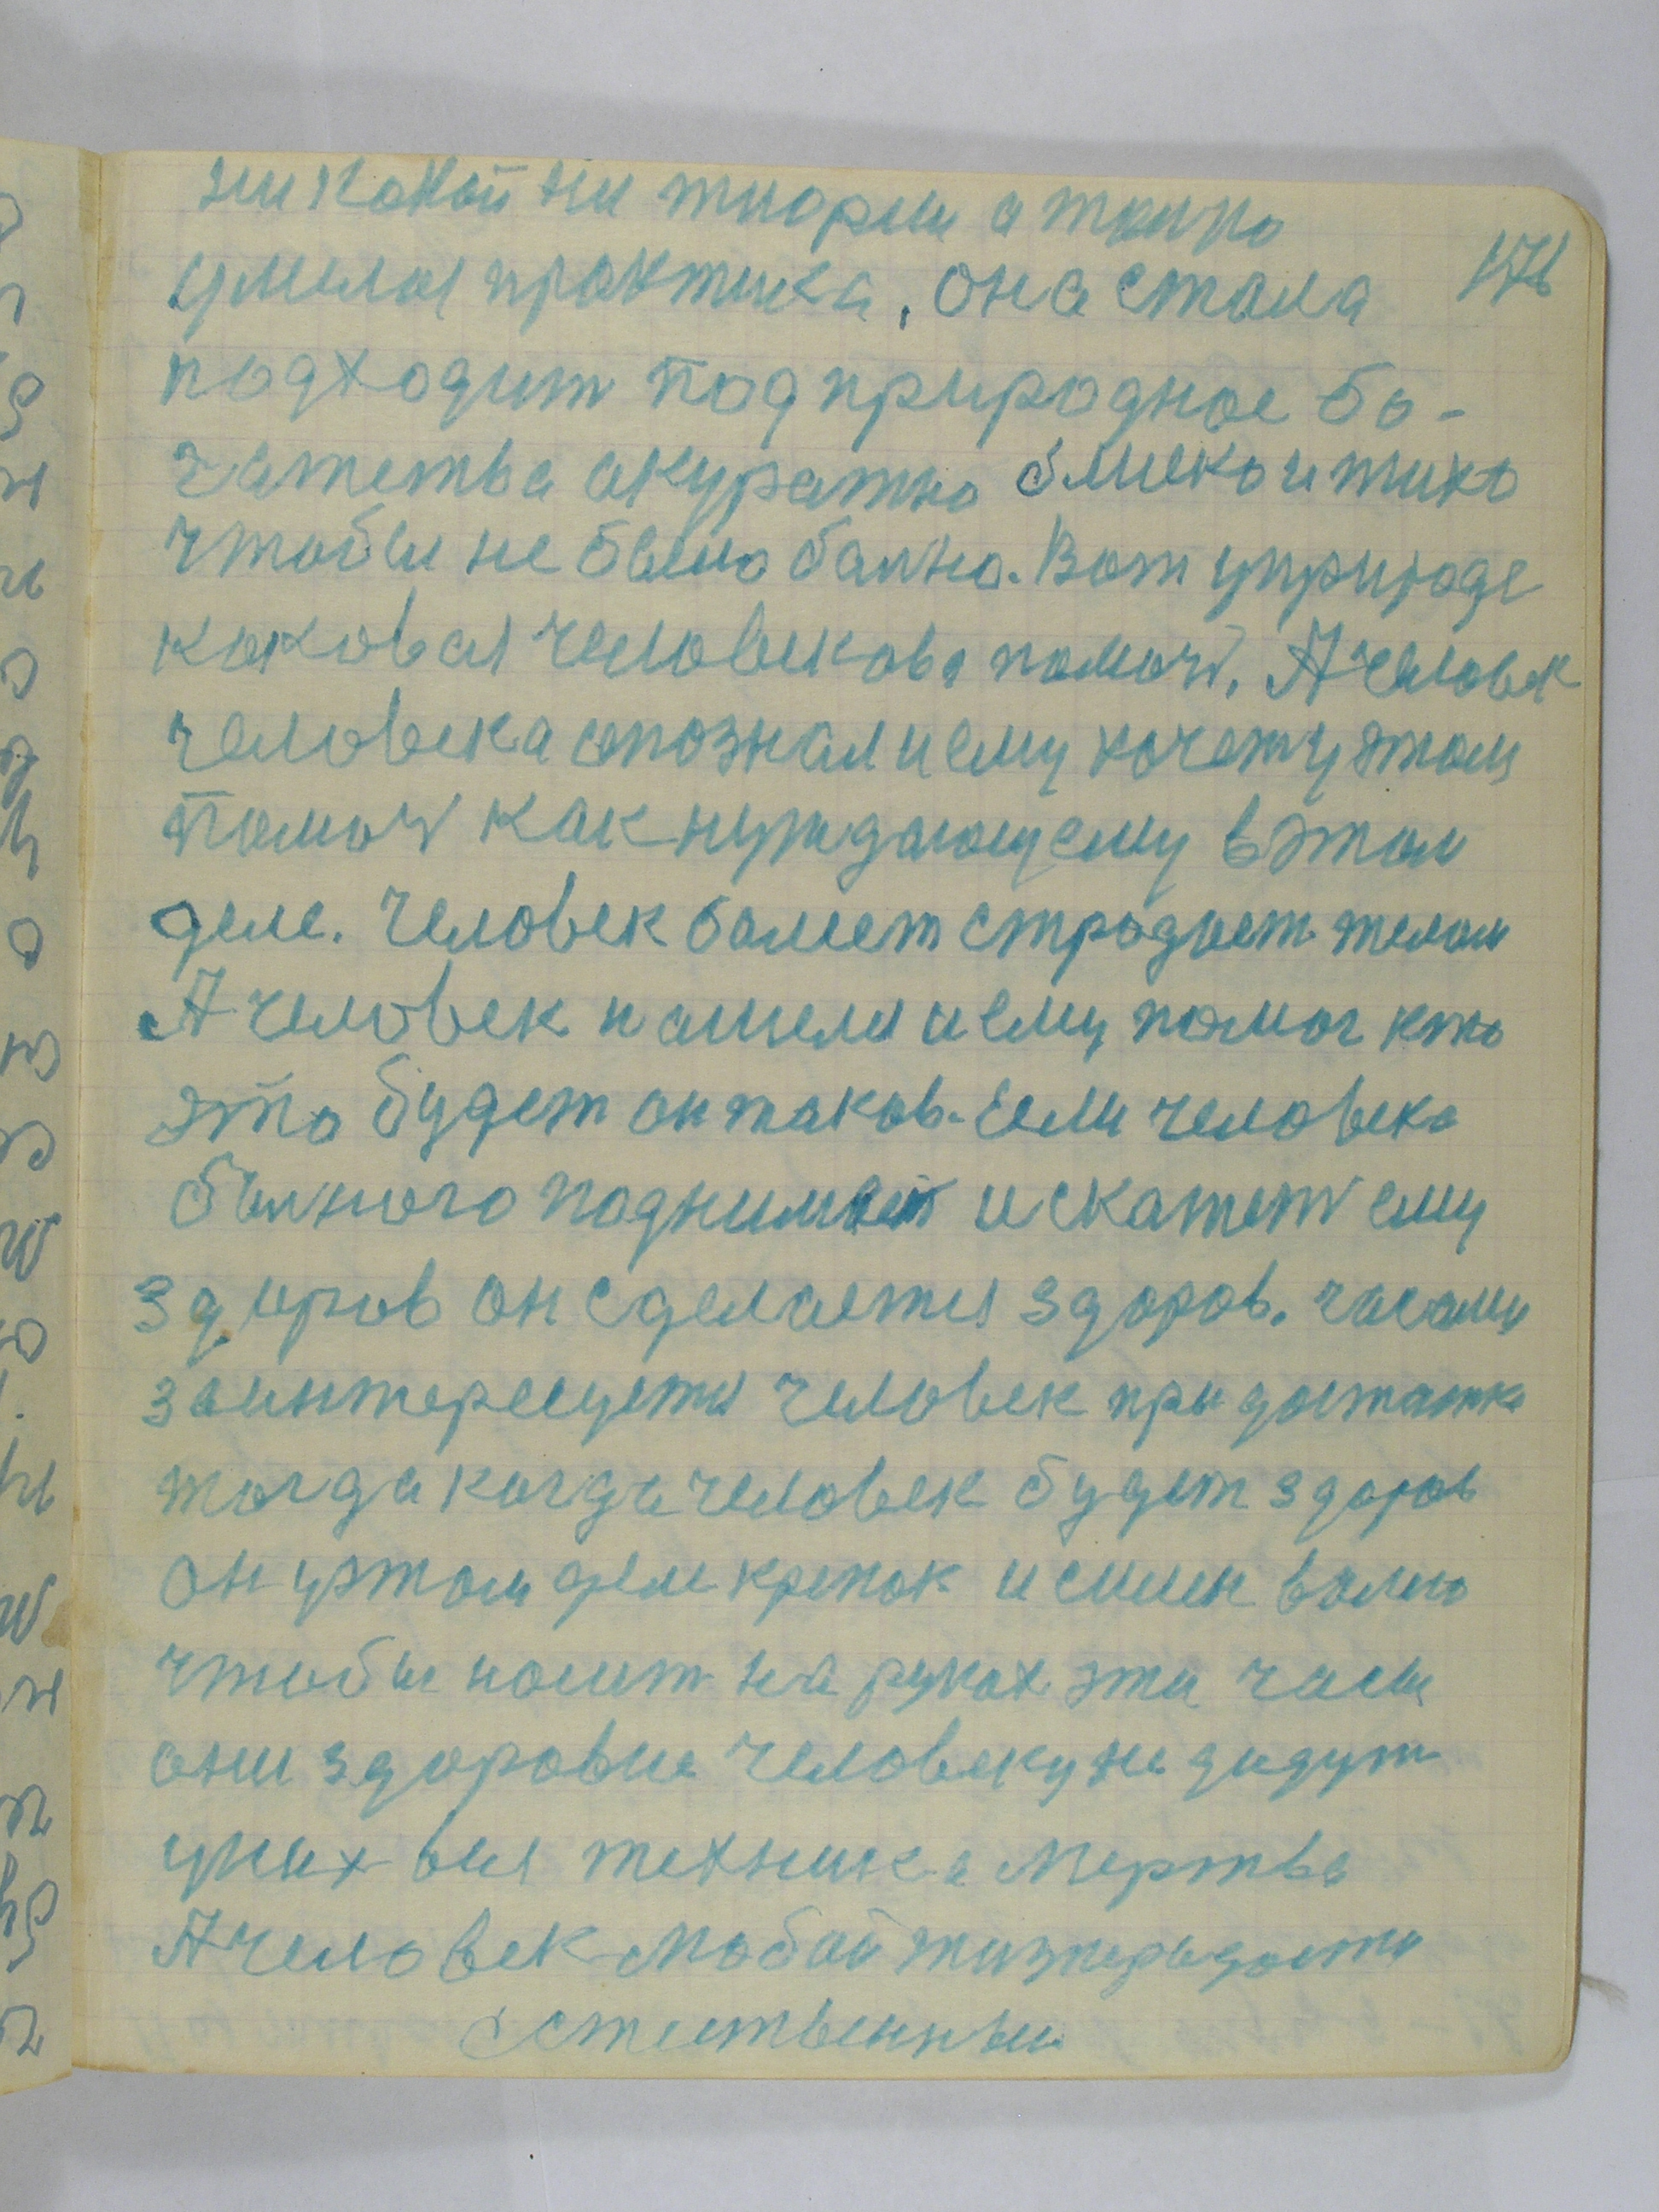 ни какой ни тиории а толко
176
умелая практика, она стала
подходит под природное бо-
гатства акуратно близко и тихо
чтобы не было бално. Вот уприроде
каковая человекова помоч. А человек
человека опознал и ему хочет у этом
помоч как нуждающему в этом
деле. человек болеет страдает телом
А человек нашелся и ему помог кто
это будет он таков. Если человека
болного поднимает и скажет ему
здоров он сделается здоров. часами
заинтересуется человек при достатка
тогда когда человек будет здоров
он у этом деле крепок и силен волю
чтобы носит на руках эти часы
они здоровие человеку не дадут
у них вся техника мертва
А человек любой жизнерадости
естественныи